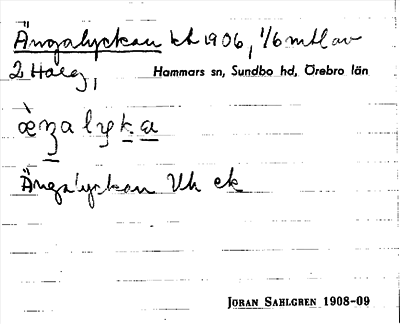 Ängalyckan kh 1906, 1/6 mtl av
2 Harg,
Hammars sn, Sundbo hd, Örebro län
æ̀ŋalyka
Ängalyckan Uh ek
JÖRAN SAHLGREN 1908-09